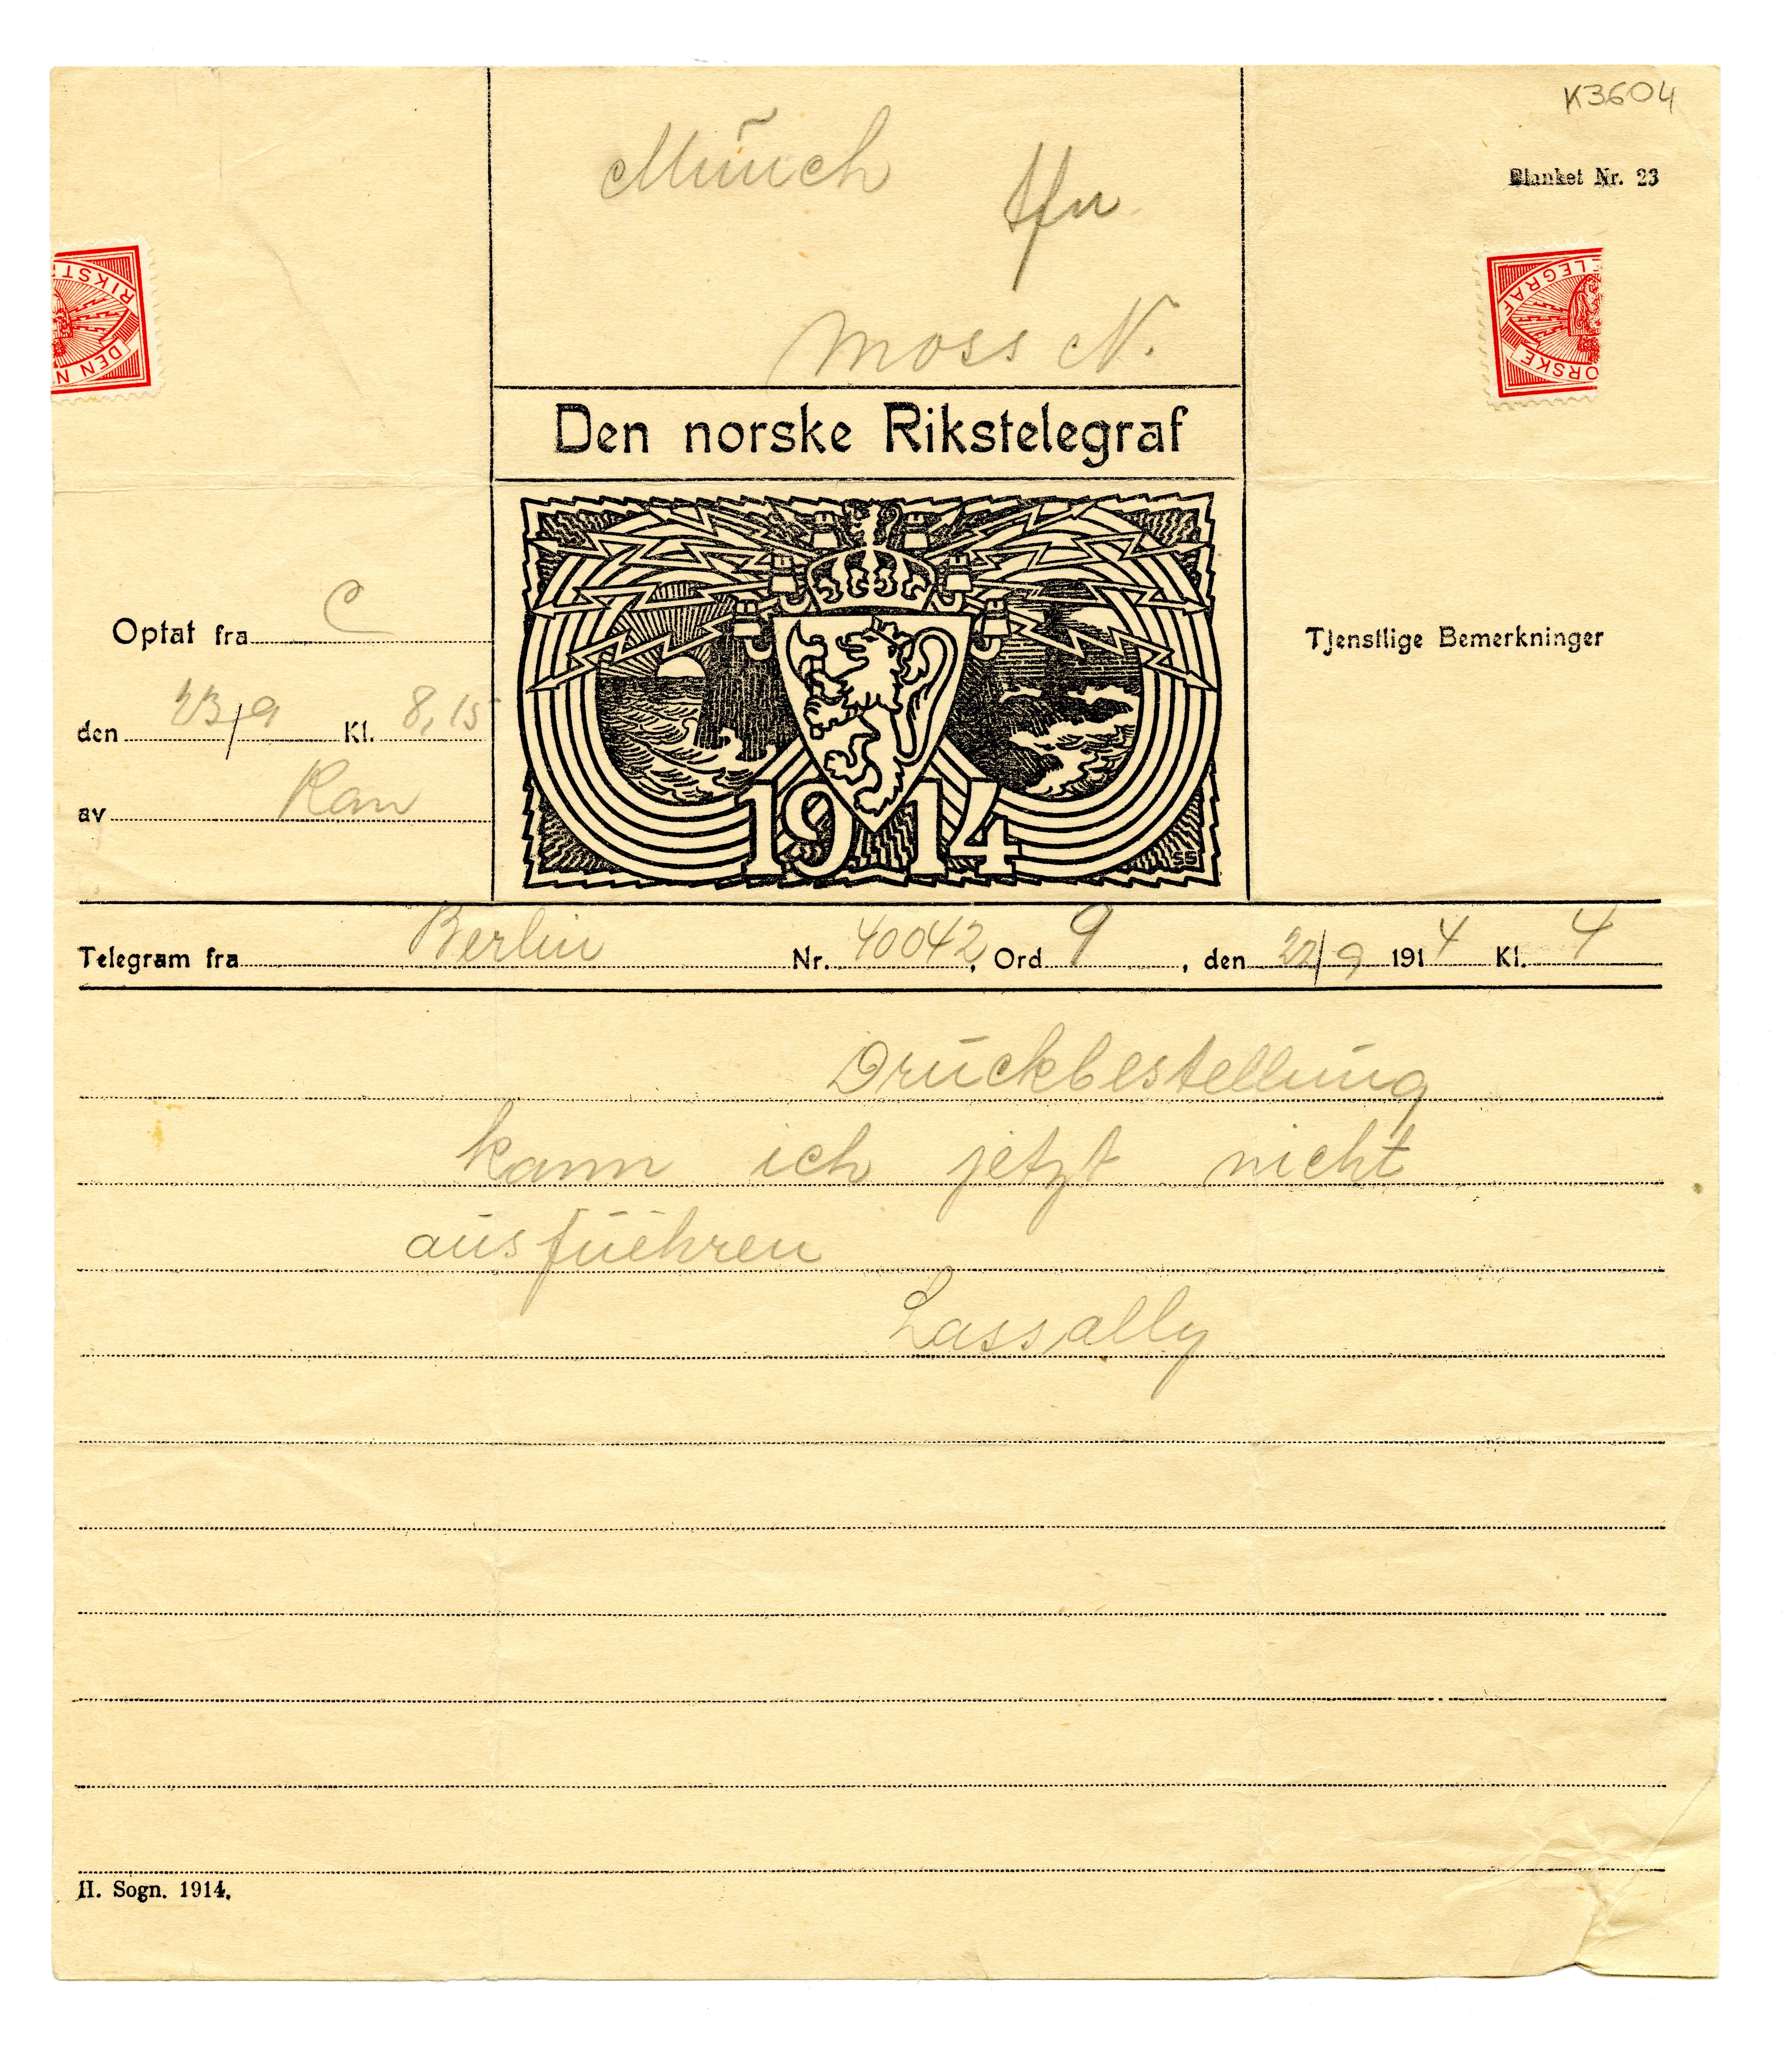 K3604
Munch
tfn
Blanket Nr. 23
Moss N.
RIKST
DEN N
ELEGRAF
ORSKE
Den norske Rikstelegraf
Optat fra C
den 23/9 Kl. 8,15
av Ran
Tjenstlige Bemerkninger
1914
SS
Telegram fra Berlin Nr. 40042, Ord 9, den 22/9 1914 Kl. 4
Druckbestellung
kann ich jetzt nicht
ausfuehren
Lassally
II. Sogn. 1914.